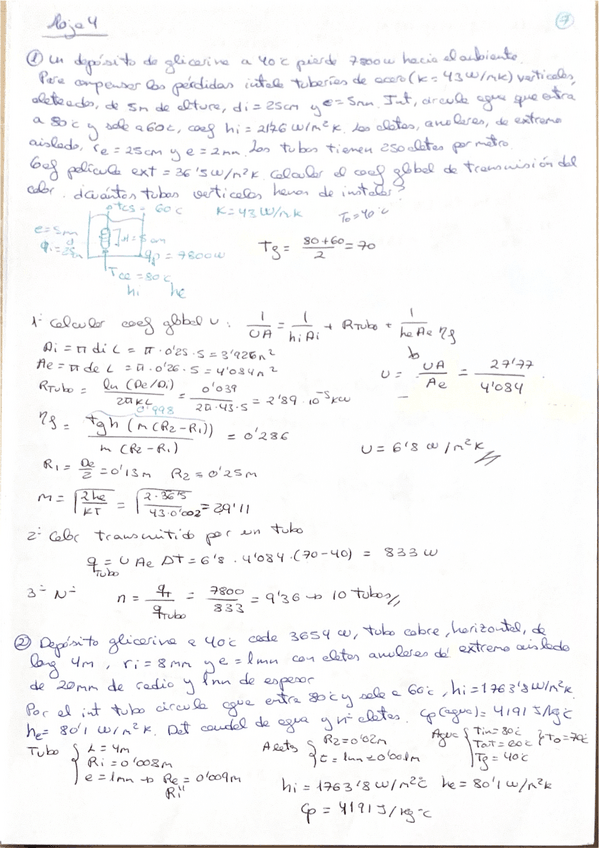 Hoja 4
7
① Un depósito de glicerina a 40ºc pierde 7800 w hacia el ambiente.
Para compensar las pérdidas instala tuberías de acero (k = 43 w/mk) verticales,
aleteadas, de 5m de altura, di = 25cm y e = 5mm. Int, circula agua que entra
a 80ºc y sale a 60ºc, coef hi = 2176 w/m²k. Las aletas, anulares, de extremo
aislado, re = 25cm y e = 2mm. Los tubos tienen 250 aletas por metro.
Coef película ext = 36'5 w/m²k. Calcular el coef global de transmisión del
calor. ¿Cuántos tubos verticales hemos de instalar?
Tcs = 60ºc K = 43 w/mk T∞ = 40ºc
e = 5mm
q = 7800w
Tce = 80ºc
hi he
Tg = (80+60)/2 = 70
1º Calcular coef global U: 1/UA = 1/hiAi + Rtubo + 1/heAe ηf
Ai = π di L = π · 0'25 · 5 = 3'926m²
Ae = π de L = π · 0'26 · 5 = 4'084m²
U = UA/Ae = 27'77/4'084 =
Rtubo = ln (De/Di)/2πKL = 0'039/2π·43·5 = 2'89 · 10⁻⁵ k/w
0'998
ηf = tgh (m(R2-R1))/m(R2-R1) = 0'286
U = 6'8 w/m²k
R1 = De/2 = 0'13m R2 = 0'25m
m = √2he/KT = √2·36'5/43·0'002 = 29'11
2º Calor transmitido por un tubo
q tubo = U Ae ΔT = 6'8 · 4'084 · (70-40) = 833 w
3º Nº n = qT/q tubo = 7800/833 = 9'36 → 10 tubos
② Depósito glicerina a 40ºc cede 3654 w, tubo cobre, horizontal, de
long 4m, ri = 8mm y e = 1mm con aletas anulares de extremo aislado
de 20mm de radio y 1mm de espesor
Por el int tubo circula agua entra 80ºc y sale a 60ºc, hi = 1763'8 w/m²k.
he = 80'1 w/m²k. Det caudal de agua y nº aletas. Cp(agua) = 4191 J/kgºc
Tubo { L = 4m
Ri = 0'008m
e = 1mm → Re = 0'009m
R1
Aletas { R2 = 0'02m
t = 1mm = 0'001m
Agua { Tin = 80ºc
Tout = 60ºc } To = 70ºc
Tg = 40ºc
hi = 1763'8 w/m²ºc he = 80'1 w/m²k
Cp = 4191 J/kgºc